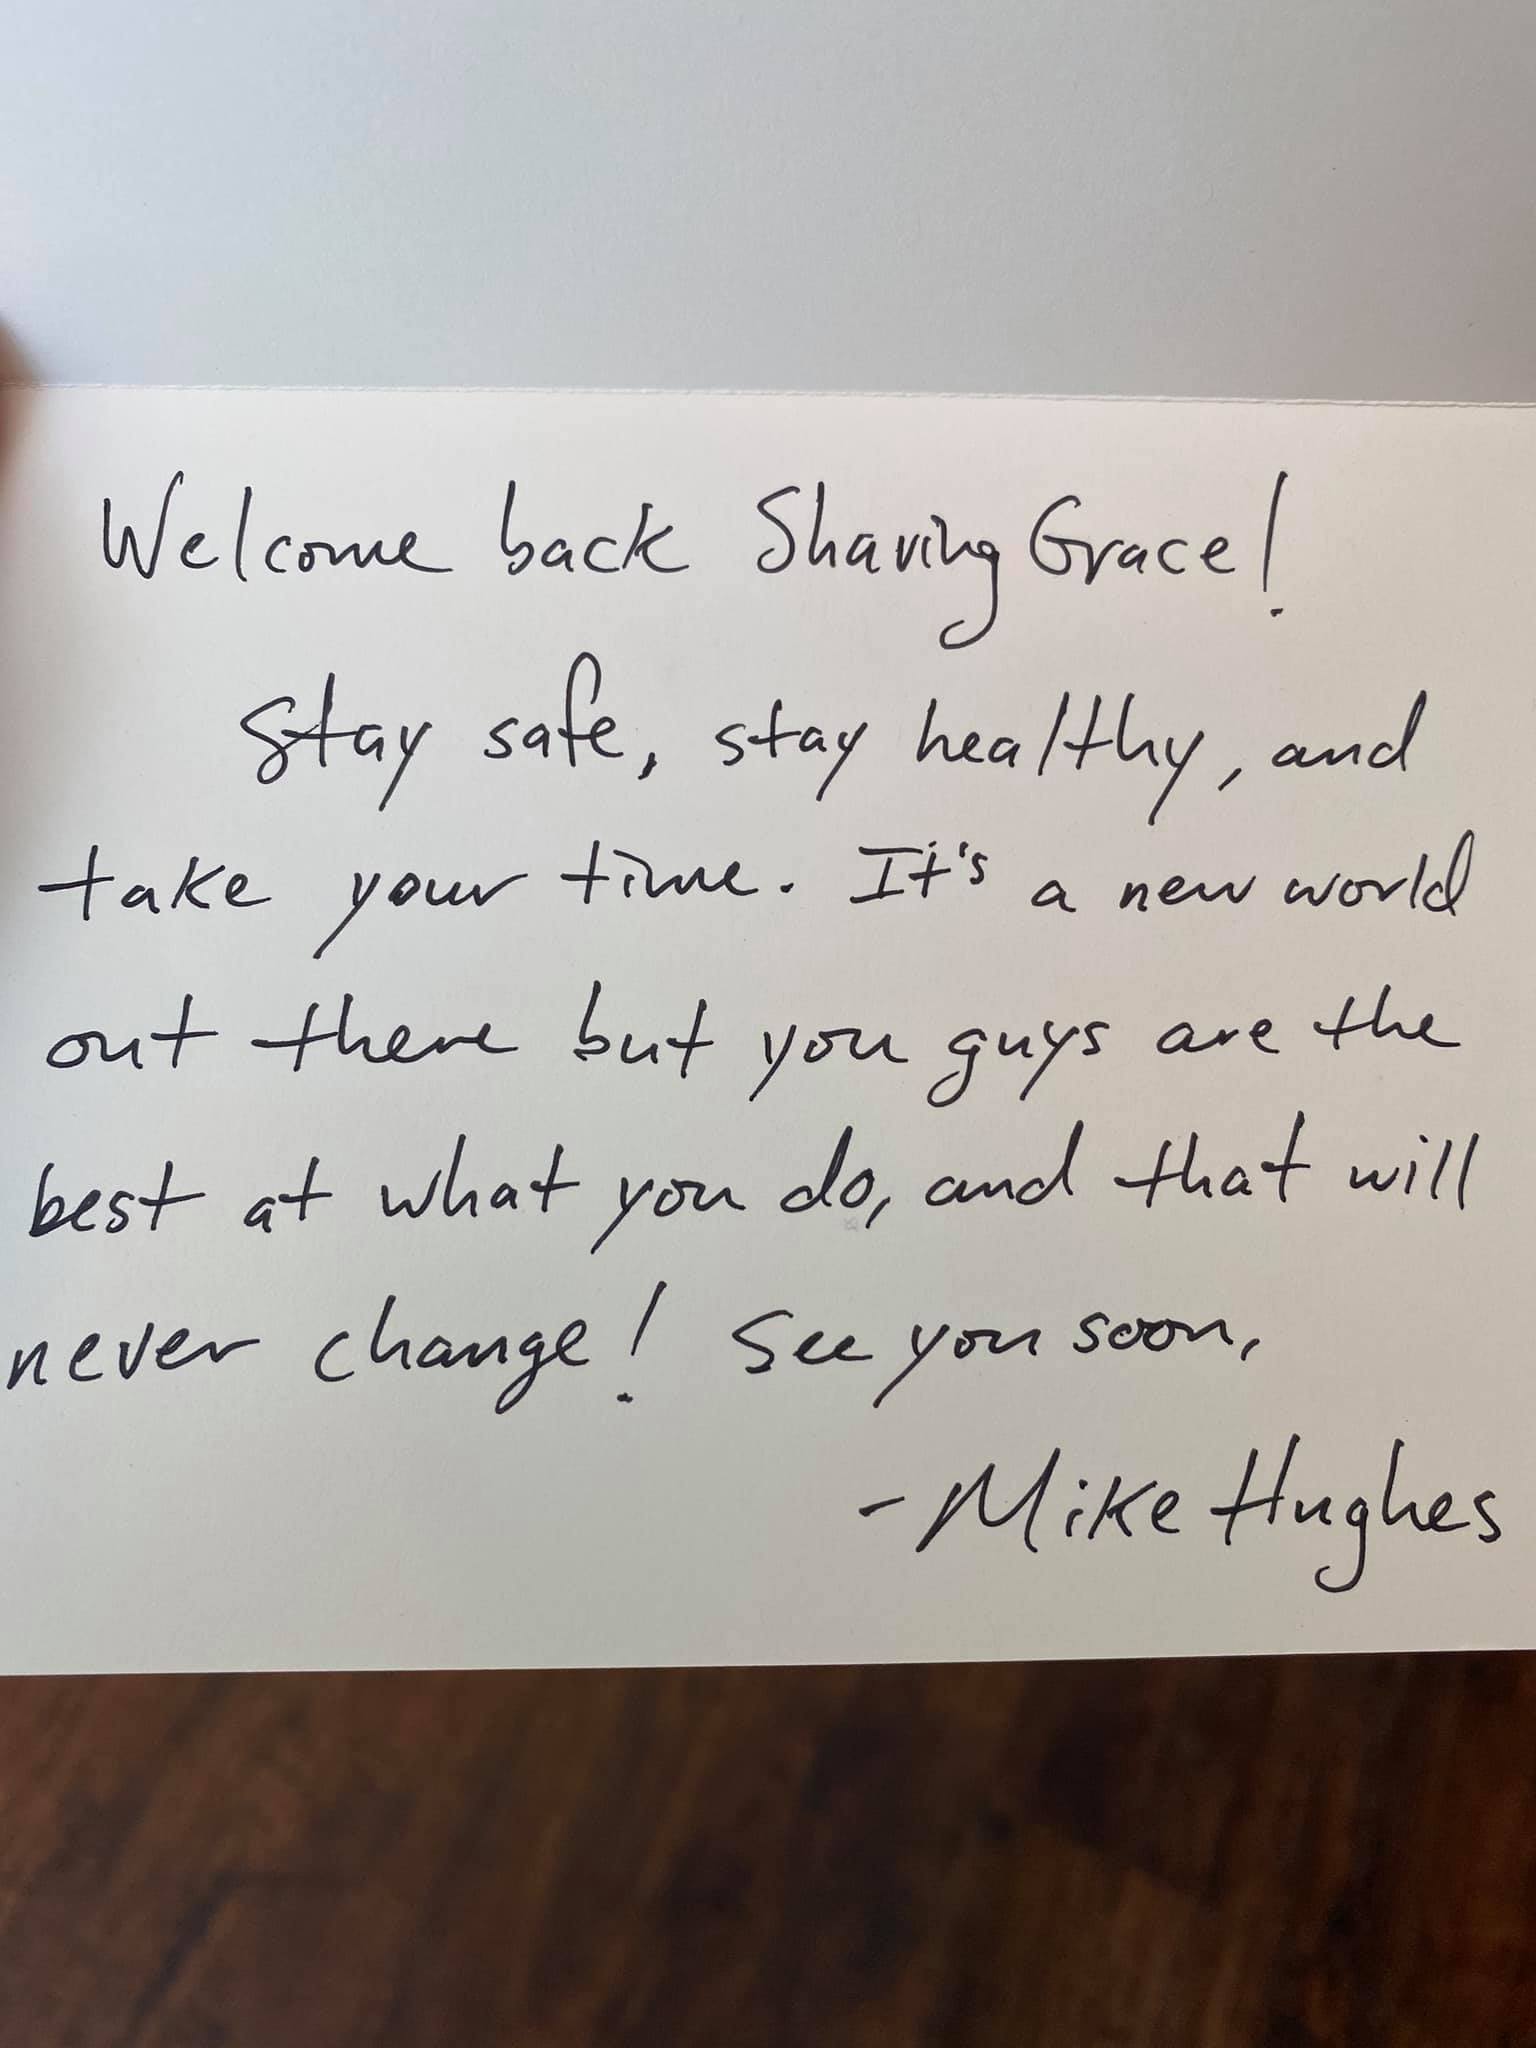 Welcome back Shaving Grace!
Stay safe, stay healthy, and
take your time. It's a new world
out there but you guys are the
best at what you do, and that will
never change! See you soon,
- Mike Hughes